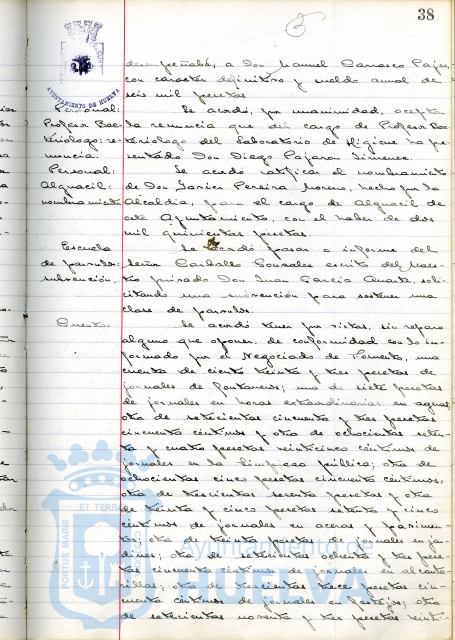 38
AYUNTAMIENTO DE HUELVA
desempeñaba, a Don Manuel Carrasco Pajar,
con caracter definitivo y sueldo anual de
seis mil pesetas
Personal:
Profesor Bac-
teriólogo: re-
nuncia.
Se acordó, por unanimidad, aceptar
la renuncia que del cargo de Profesor Bac-
teriólogo del Laboratorio de Higiene ha pre-
sentado Don Diego Pajaron Jimenez.
Personal:
Alguacil:
nombramiento
Se acordó ratificar el nombramiento
de Don Javier Pereira Moreno, hecho por la
Alcaldia, para el cargo de Alguacil de
este Ayuntamiento, con el haber de dos
mil quinientas pesetas.
Escuela
de parvulos:
subvención.
Se acordó pasar a informe del
Señor Carballo Gonzalez escrito del Maes-
tro privado Don Juan Garcia soli-
citando una subvención para sostener una
clase de parvulos.
Cuentas.
Se acordó tener por vistas, sin reparo
alguno que oponer, de conformidad con lo in-
formado por el Negociado de Fomento, una
cuenta de ciento treinta y tres pesetas de
jornales de fontaneros; una de siete pesetas
de jornales en horas extraordinarias en aguas;
otra de setecientas cincuenta y tres pesetas
cincuenta céntimos y otra de ochocientas seten-
ta y cuatro pesetas veinticinco céntimos de
jornales en la limpieza pública; otra de
ochocientas cinco pesetas cincuenta céntimos,
otra de trescientas sesenta pesetas y otra
de treinta y cinco pesetas setenta y cinco
céntimos de jornales en aceras y pavimen-
tos; otra de treinta pesetas de jornales en jar-
dines; otra de setecientas ochenta y tres pese-
tas cincuenta céntimos de jornales en alcanta-
rillas; otra de trescientas trece pesetas cin-
cuenta céntimos de jornales en festejos; otra
de setecientas noventa y tres pesetas veinti-
PORTUS MARIS ET TERRAE
Ayuntamiento de
HUELVA